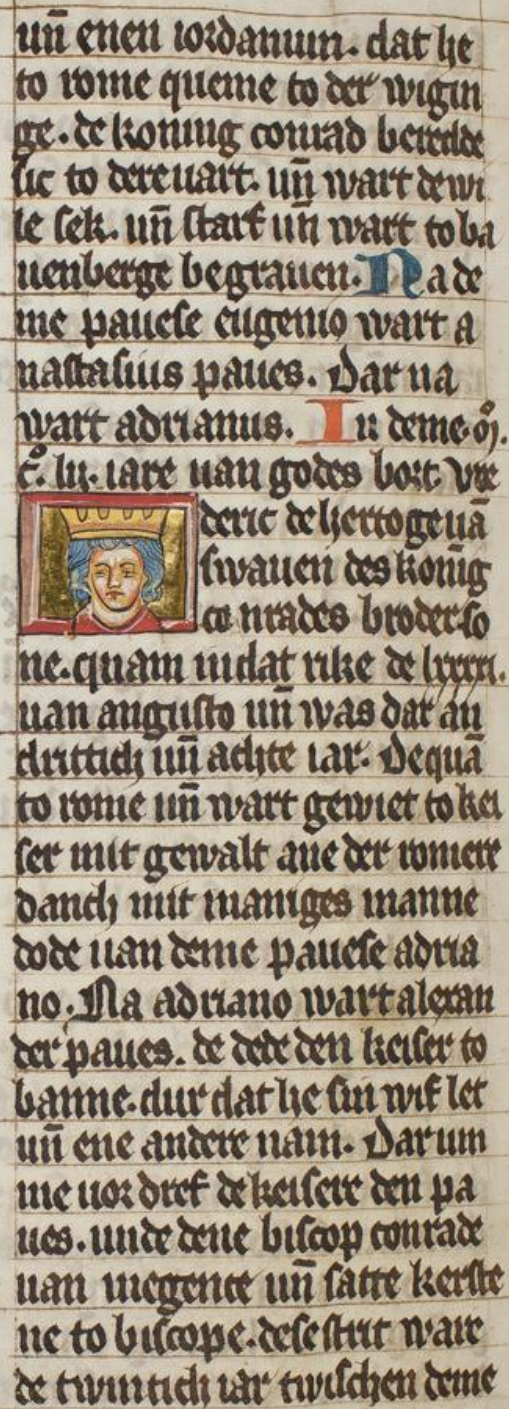 un̄ enen iordanum. dat he
to rome queme to der wigin
ge. de koning conrad bereide
sic to dere uart. un̄ wart dewi
le sek. un̄ starf un̄ wart to ba
uenberge begrauen. Na de
me pauese eugenio wart a
nastasius paues. Dar na
wart adrianus. In deme. mͦ.
cͦ. lii. iare uan godes bort. vre
deric de hertoge uā
swauen des konig
co nrades broder so
ne. quam in dat rike de lxxxxi.
uan augusto un̄ was dar an
drittich un̄ achte iar. De quā
to rome un̄ wart gewiet to kei
ser mit gewalt ane der romere
danch mit maniges manne
dode uan deme pauese adria
no. Na adriano wart alexan
der paues. de dede den keiser to
banne. dur dat he sin wif let
un̄ ene andere nam. Dar um
me uor dref de keisere den pa
ues. unde dene biscop conrade
uan megence un̄ satte kerste
ne to biscope. dese strit ware
de twintich iar twischen deme